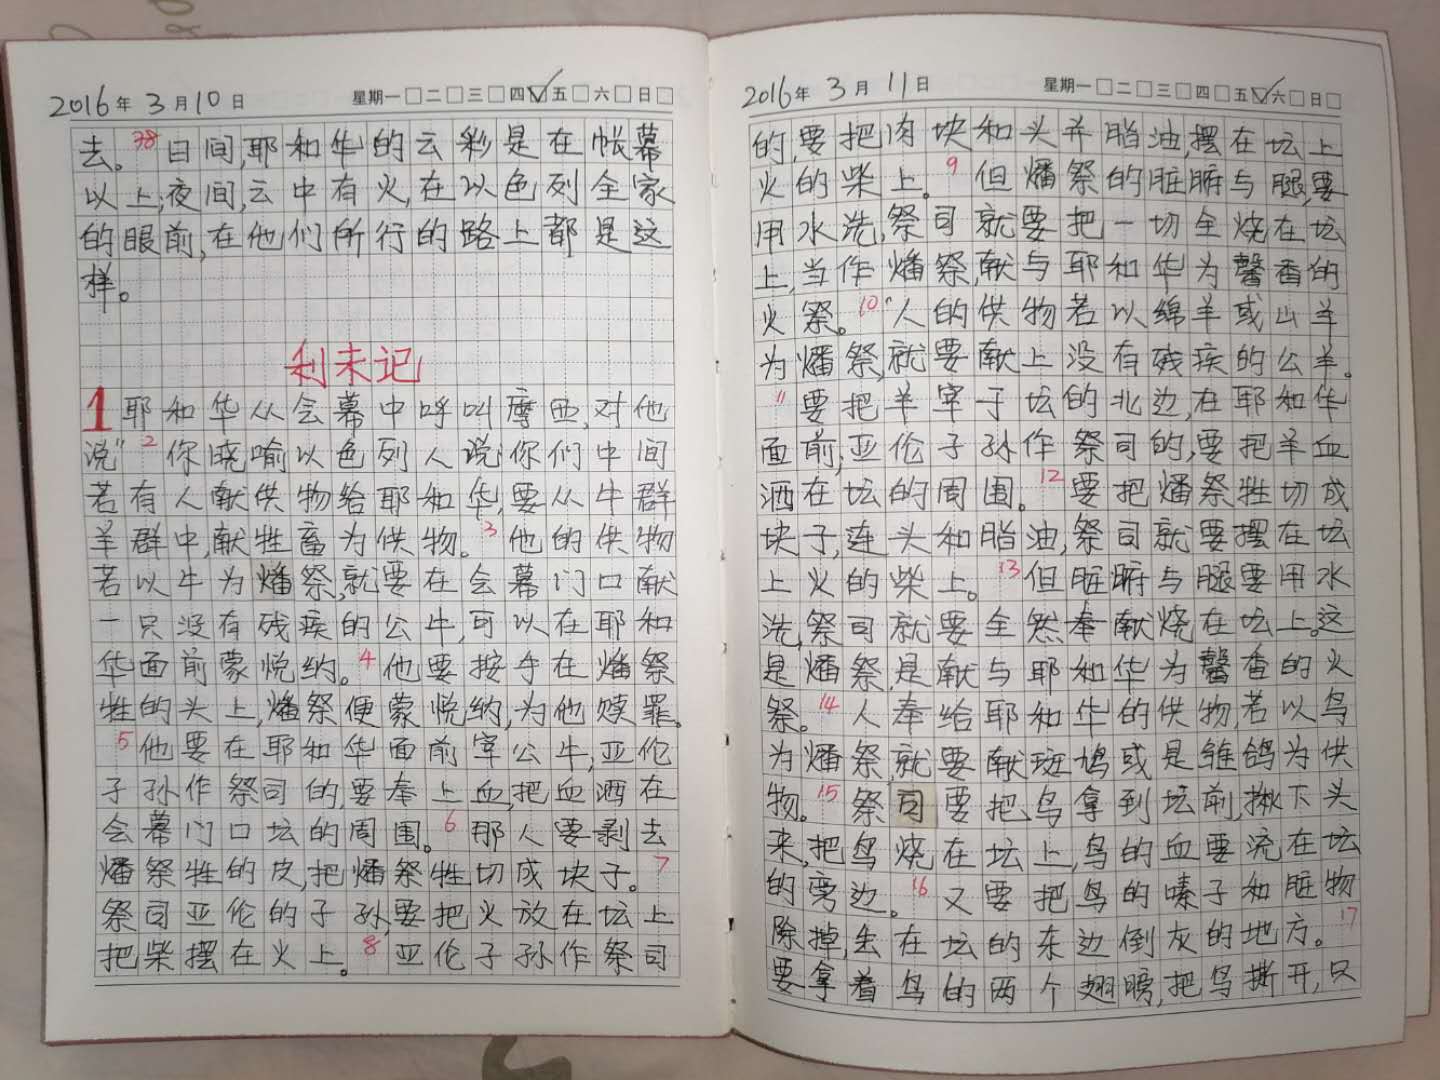 2016年 3月10日 星期一□二□三□四☑五□六□日□
去。38日间,耶和华的云彩是在帐幕
以上;夜间,云中有火,在以色列全家
的眼前,在他们所行的路上都是这
样。
利未记
1耶和华从会幕中呼叫摩西,对他
说"2你晓喻以色列人说:你们中间
若有人献供物给耶和华,要从牛群
羊群中,献牲畜为供物。3他的供物
若以牛为燔祭,就要在会幕门口献
一只没有残疾的公牛,可以在耶和
华面前蒙悦纳。4他要按手在燔祭
牲的头上,燔祭便蒙悦纳,为他赎罪。
5他要在耶和华面前宰公牛;亚伦
子孙作祭司的,要奉上血,把血洒在
会幕门口坛的周围。6那人要剥去
燔祭牲的皮,把燔祭牲切成块子。7
祭司亚伦的子孙,要把火放在坛上
把柴摆在火上。8亚伦子孙作祭司
2016年 3月11日 星期一□二□三□四□五☑六□日□
的,要把肉块和头并脂油,摆在坛上
火的柴上。9但燔祭的脏腑与腿,要
用水洗,祭司就要把一切全烧在坛
上,当作燔祭,献与耶和华为馨香的
火祭。10"人的供物若以绵羊或山羊
为燔祭,就要献上没有残疾的公羊。
11要把羊宰于坛的北边,在耶和华
面前,亚伦子孙作祭司的,要把羊血
洒在坛的周围。12要把燔祭牲切成
块子,连头和脂油,祭司就要摆在坛
上火的柴上。13但脏腑与腿要用水
洗,祭司就要全然奉献烧在坛上。这
是燔祭,是献与耶和华为馨香的火
祭。14人奉给耶和华的供物,若以鸟
为燔祭,就要献斑鸠或是雏鸽为供
物。15祭司要把鸟拿到坛前,揪下头
来,把鸟烧在坛上,鸟的血要流在坛
的旁边。16又要把鸟的嗉子和脏物
除掉,丢在坛的东边倒灰的地方。17
要拿着鸟的两个翅膀,把鸟撕开,只